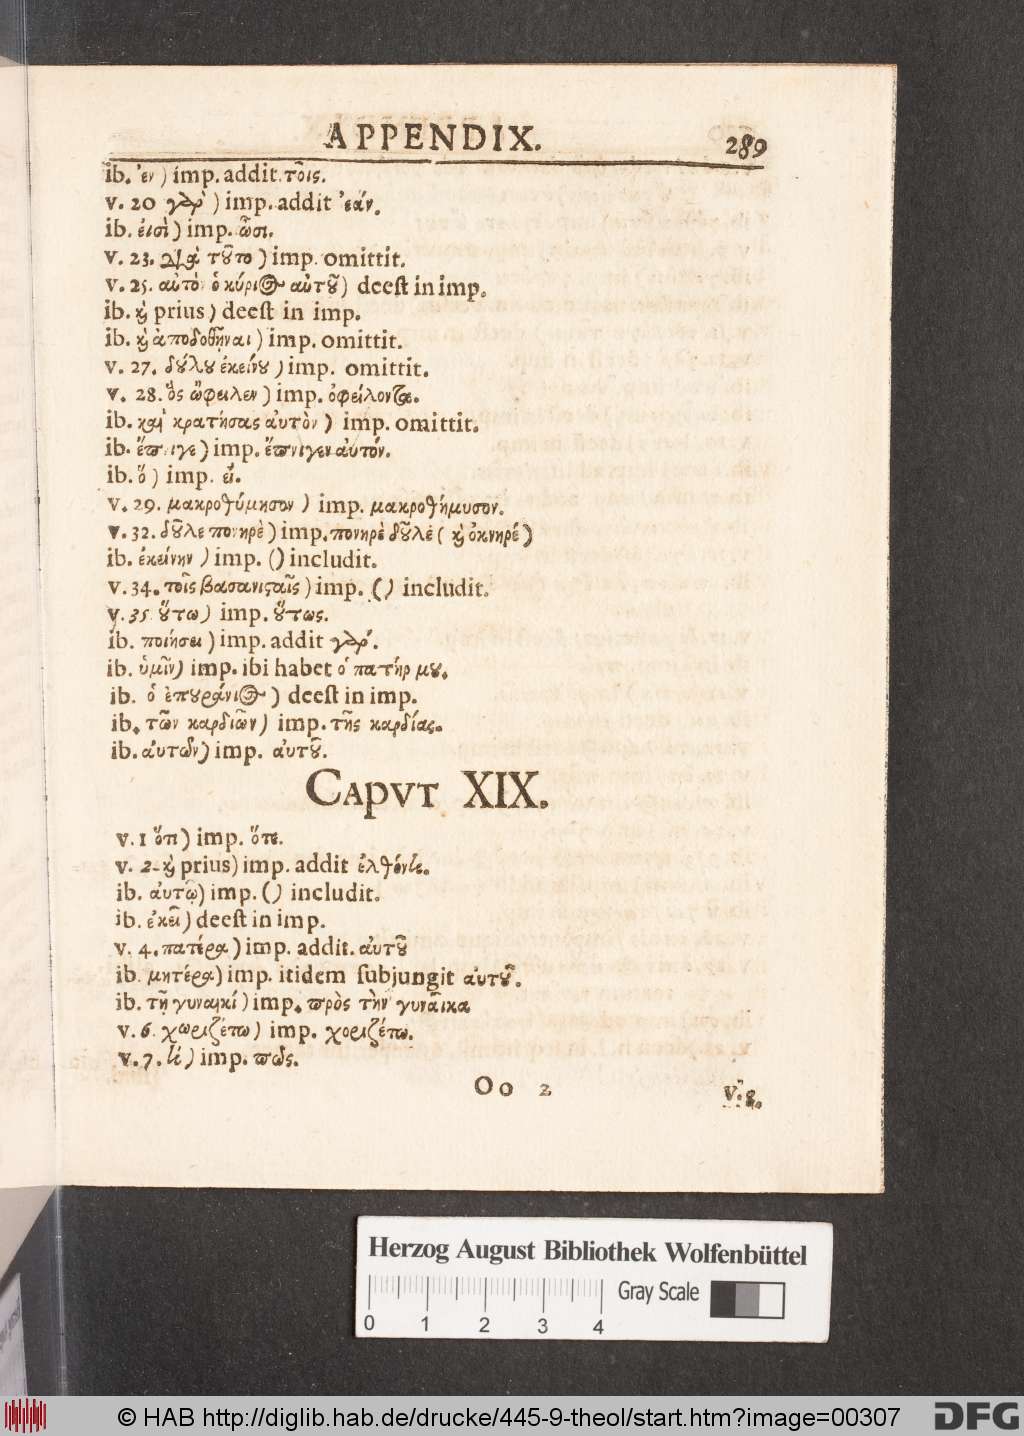 APPENDIX. 289
ib. ἐν) imp. addit. τοῖς.
v. 20 γὰρ) imp. addit ἐάν.
ib. εἰσὶ) imp. ὦσι.
v. 23. Διὰ τȣ͂το) imp. omittit.
v. 25. αὐτὸν ὁ κύριος αὐτȣ͂) deest in imp.
ib. καὶ prius) deest in imp.
ib. καὶ ἀποδοθῆναι) imp. omittit.
v. 27. δȣ́λȣ ἐκείνȣ) imp. omittit.
v. 28. ὃς ὤφειλεν) imp. ὀφείλοντα.
ib. καὶ κρατήσας αὐτὸν) imp. omittit.
ib. ἔπνιγε) imp. ἔπνιγεν αὐτόν.
ib. ὅ) imp. εἴ.
v. 29. μακροθύμησον) imp. μακροθήμυσον.
v. 32. δȣ͂λε πονηρὲ) imp. πονηρὲ δȣ͂λέ (καὶ ὀκνηρέ)
ib. ἐκείνην) imp. () includit.
v. 34. τοῖς βασανιςαῖς) imp. () includit.
v. 35 ȣ̔́τω) imp. ȣ̔́τως.
ib. ποιήσει) imp. addit γάρ.
ib. ὑμῖν) imp. ibi habet ὁ πατήρ μȣ.
ib. ὁ ἐπȣράνιος) deest in imp.
ib. τῶν καρδιῶν) imp. τῆς καρδίας.
ib. αὐτῶν) imp. αὐτȣ͂.
CAPVT XIX.
v. 1 ὅτι) imp. ὅτε.
v. 2. καὶ prius) imp. addit ἐλθόντες.
ib. αὐτῷ) imp. () includit.
ib. ἐκεῖ) deest in imp.
v. 4. πατέρα) imp. addit. αὐτȣ͂
ib. μητέρα) imp. itidem subjungit αὐτȣ͂.
ib. τῇ γυναικί) imp. πρὸς τὴν γυναῖκα
v. 6. χωριζέτω) imp. χοριζέτω.
v. 7. τί) imp. πῶς.
Oo 2 v. 8.
Herzog August Bibliothek Wolfenbüttel
Gray Scale
0 1 2 3 4
© HAB http://diglib.hab.de/drucke/445-9-theol/start.htm?image=00307 DFG